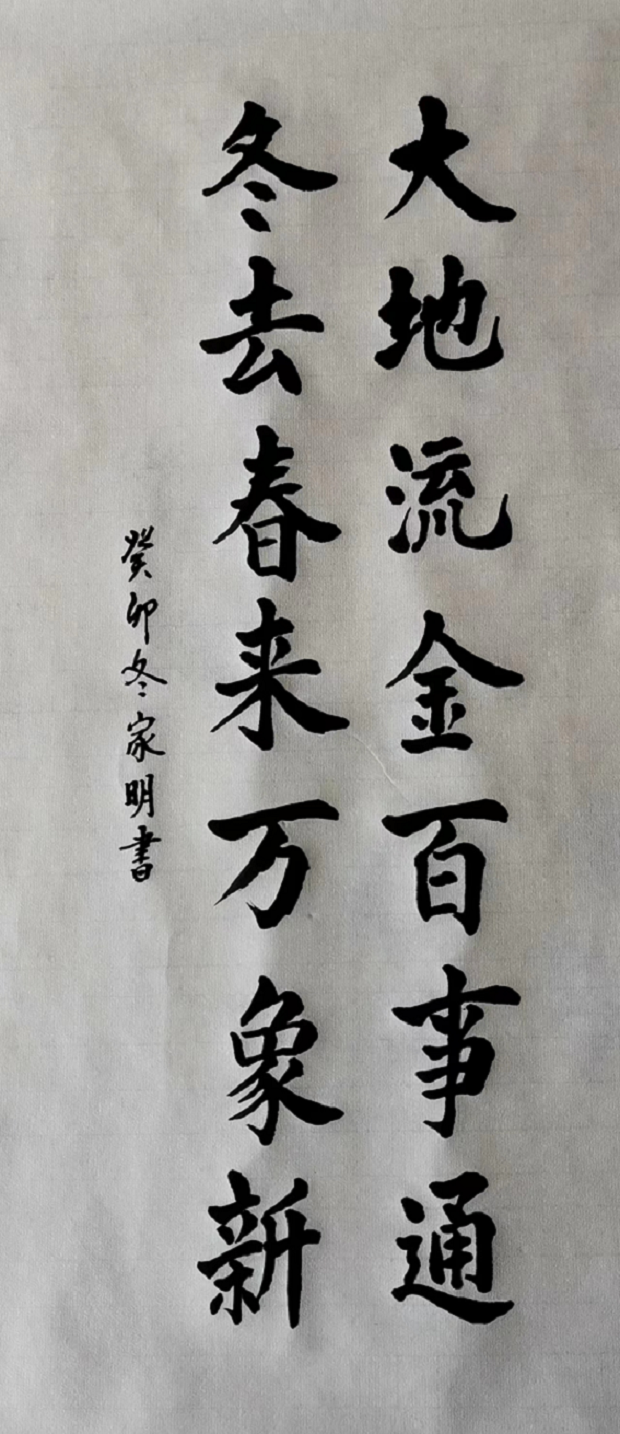 大地流金百事通
冬去春来万象新
癸卯冬家明書